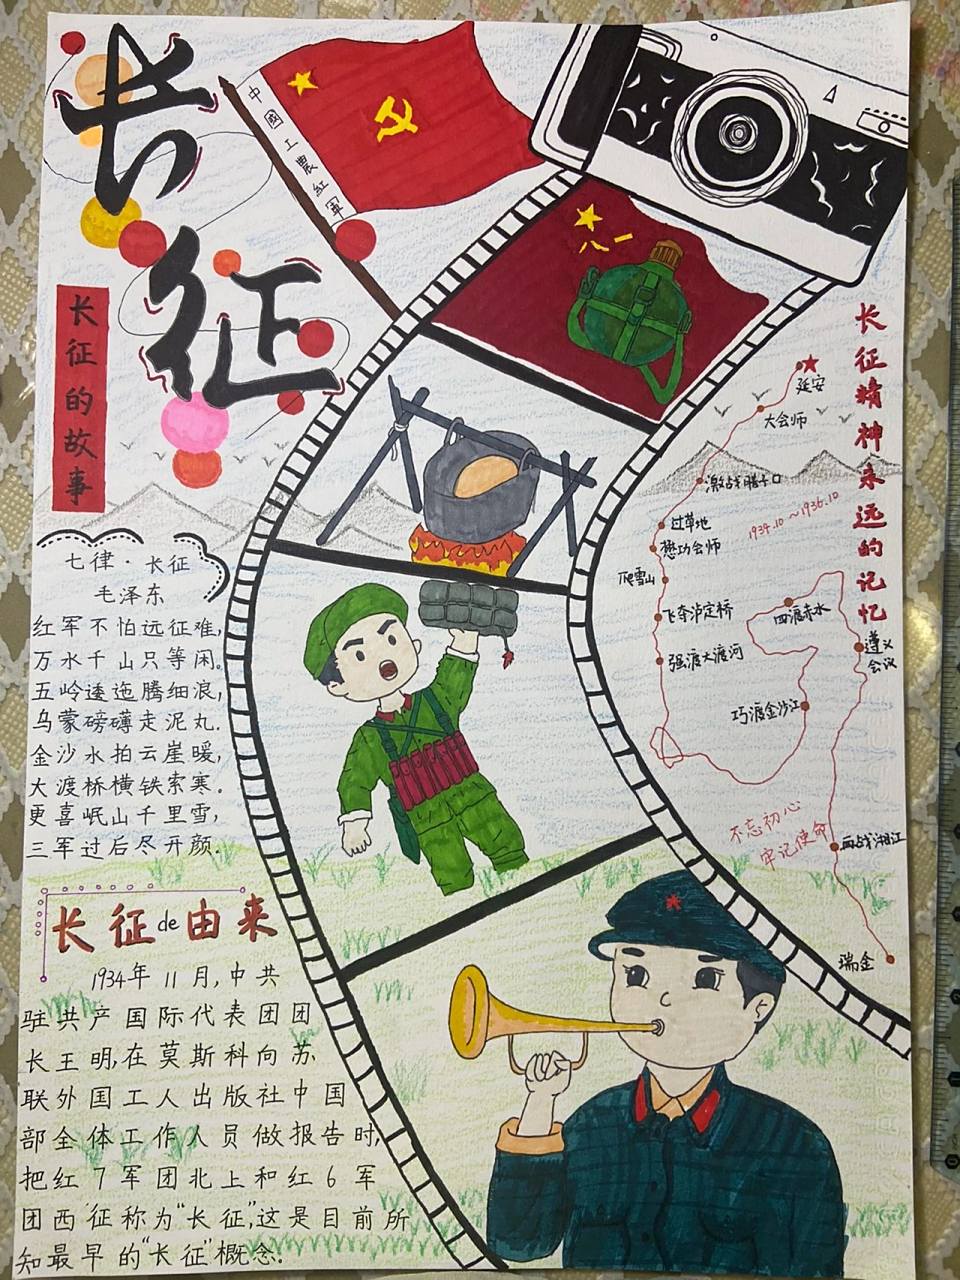 长征
中國工農紅軍
八一
长征的故事
七律·长征
毛泽东
红军不怕远征难,
万水千山只等闲。
五岭逶迤腾细浪,
乌蒙磅礴走泥丸.
金沙水拍云崖暖,
大渡桥横铁索寒.
更喜岷山千里雪,
三军过后尽开颜.
长征de由来
1934年11月,中共
驻共产国际代表团团
长王明,在莫斯科向苏
联外国工人出版社中国
部全体工作人员做报告时,
把红7军团北上和红6军
团西征称为“长征”,这是目前所
知最早的“长征”概念.
长征精神永远的记忆
延安
大会师
激战腊子口
1934.10~1936.10
过草地
懋功会师
爬雪山
飞夺泸定桥
四渡赤水
遵义
会议
强渡大渡河
巧渡金沙江
不忘初心
牢记使命
血战湘江
瑞金